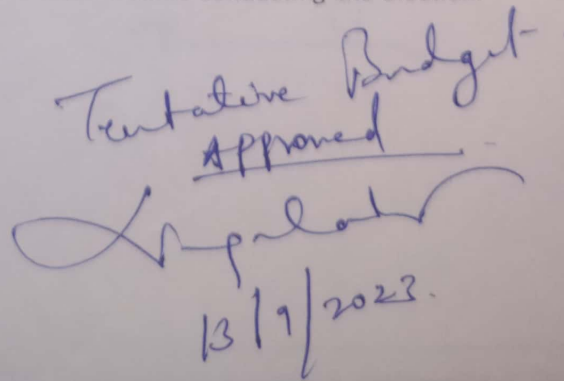 Tentative Budget
Approved
13/9/2023.